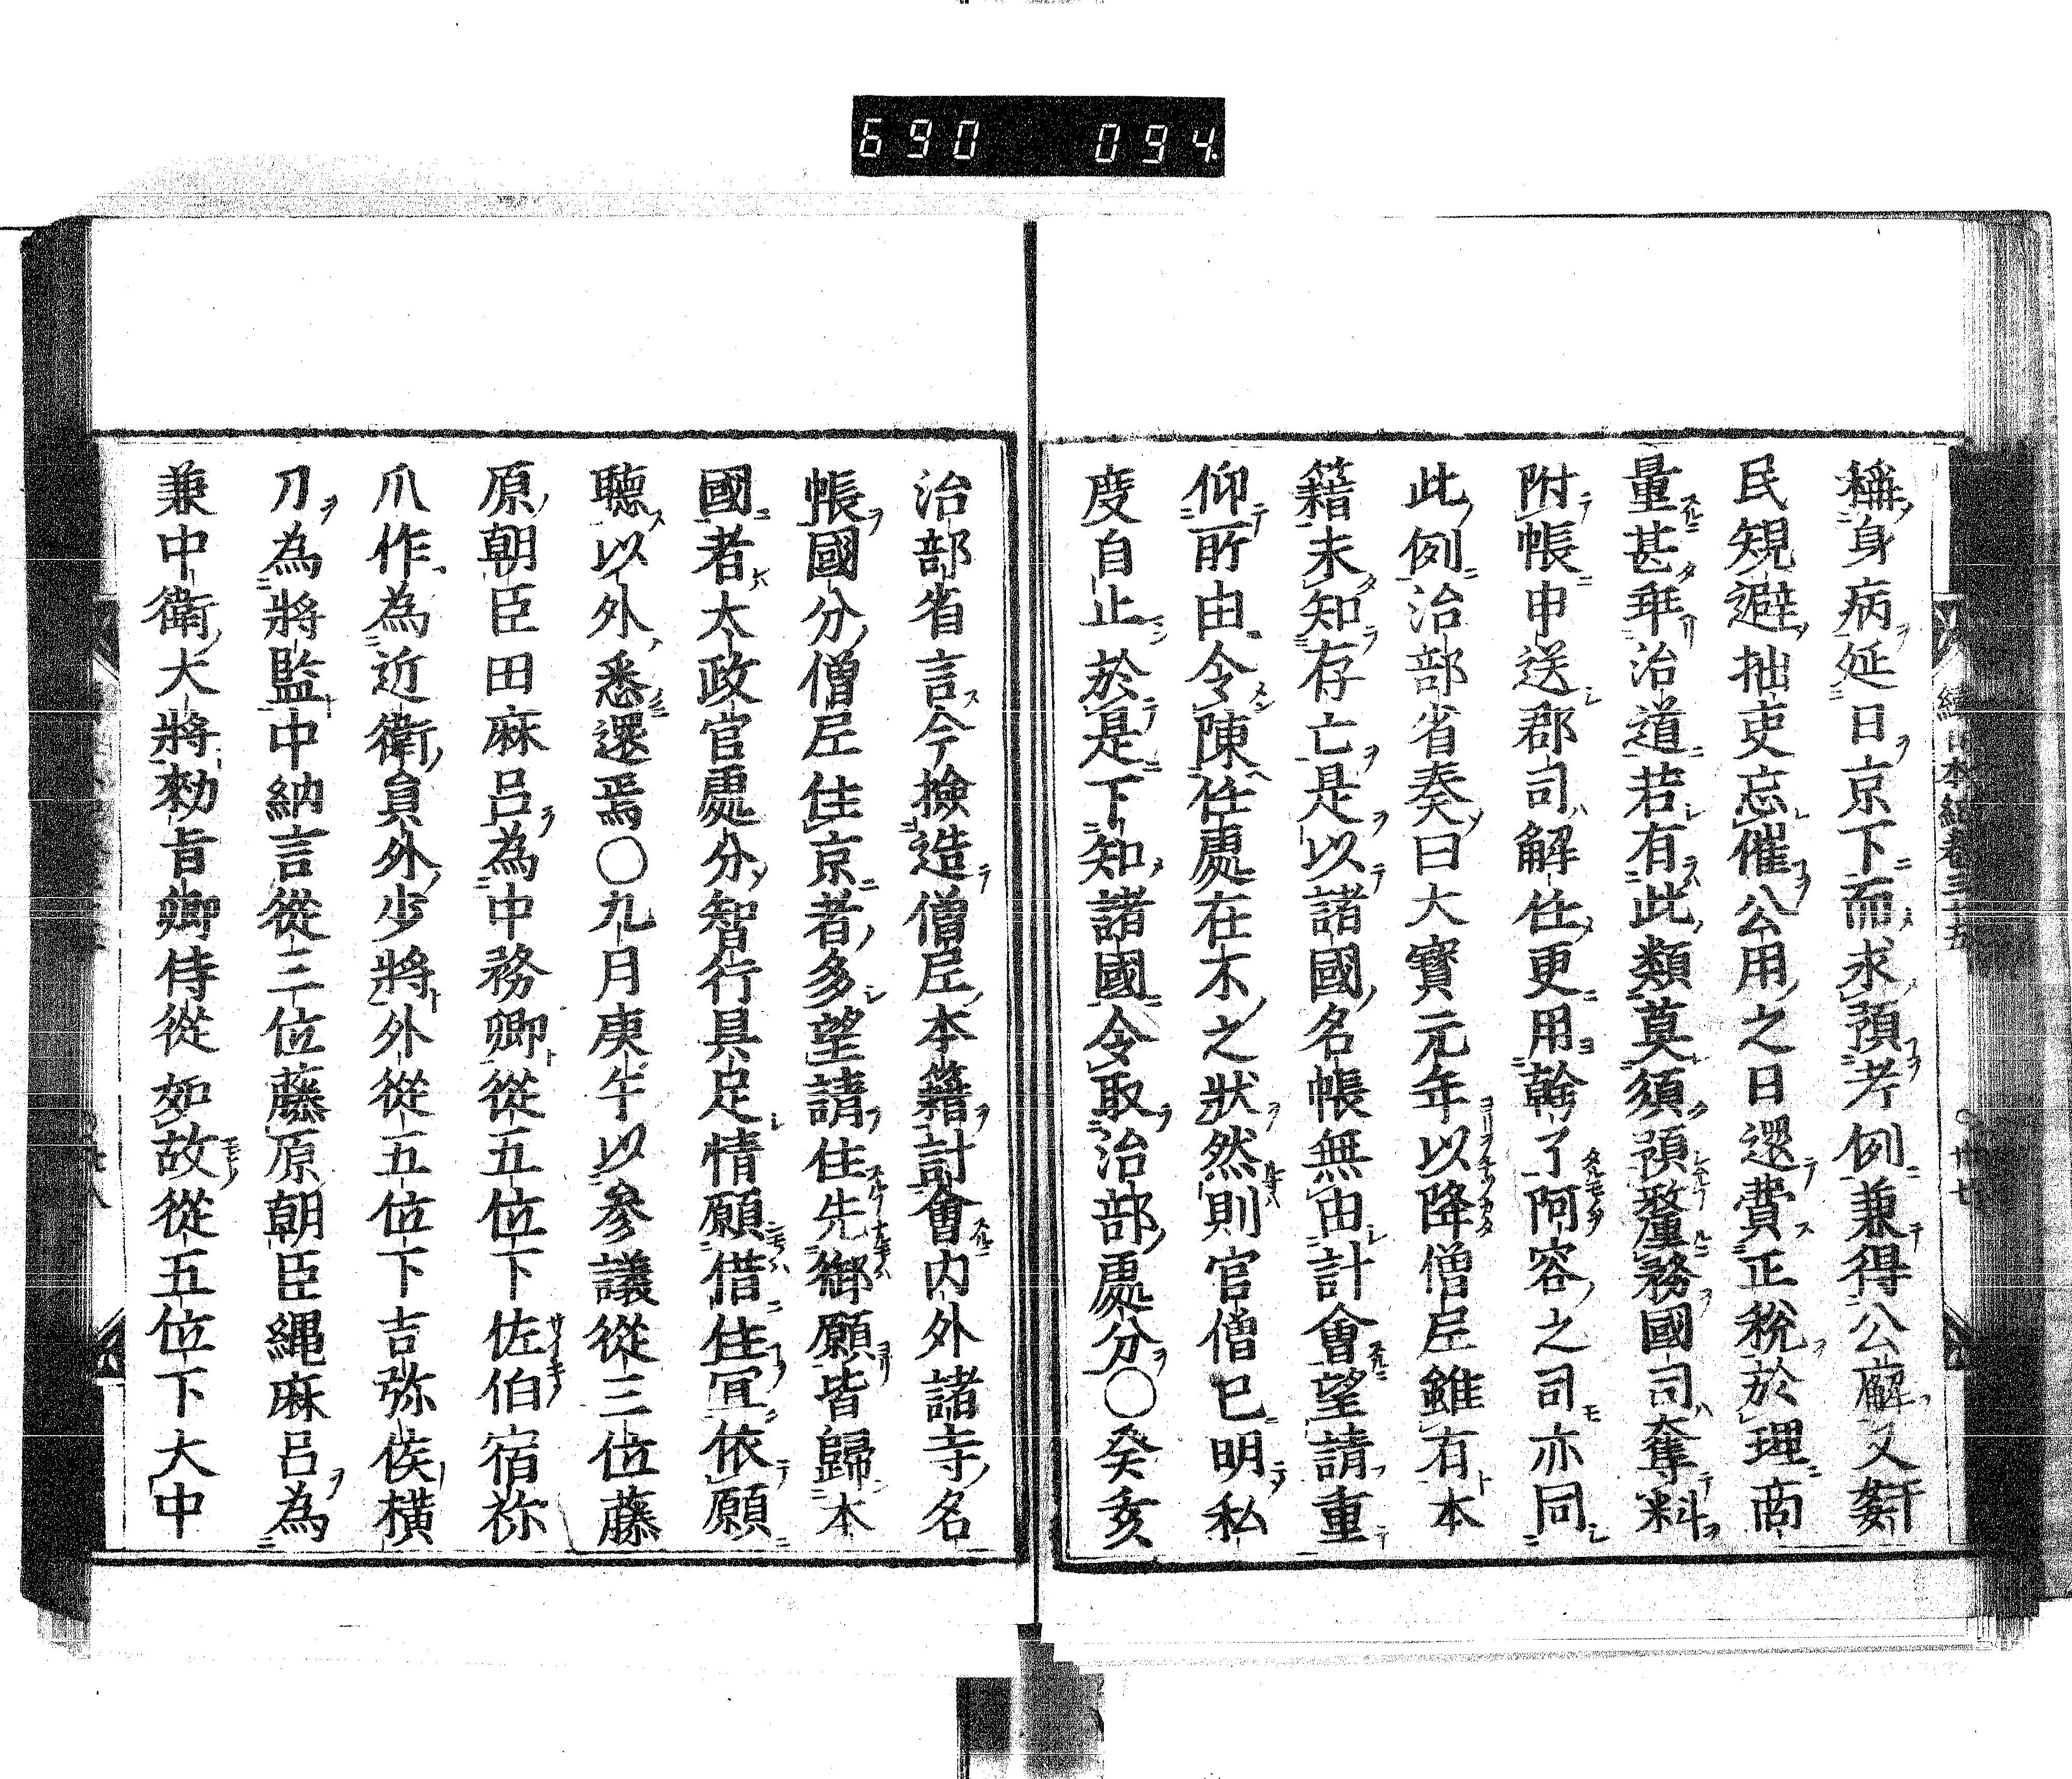 690 094
續日本紀卷三十五
稱身病延日京下而求預考例兼得公廨又姧
民規避拙吏忘催公用之日還費正税於理商
量甚乖治道若有此類莫須預釐務國司奪料
附帳申送郡司解任更用幹了阿容之司亦同
此例治部省奏曰大寶元年以降僧尼雖有本
籍未知存亡是以諸國名帳無由計會望請重
仰所由令陳住處在不之狀然則官僧已明私
度自止於是下知諸國令取治部處分○癸亥
治部省言今撿造僧尼本籍計會内外諸寺名
帳國分僧尼住京者多望請住先鄉願皆歸本
國者太政官處分智行具足情願借住宜依願
聽以外悉還焉○九月庚午以參議從三位藤
原朝臣田麻呂為中務卿從五位下佐伯宿祢
爪作為近衛員外少將外從五位下吉弥侯横
刀為將監中納言從三位藤原朝臣繩麻呂為
兼中衛大將勅旨卿侍從如故從五位下大中